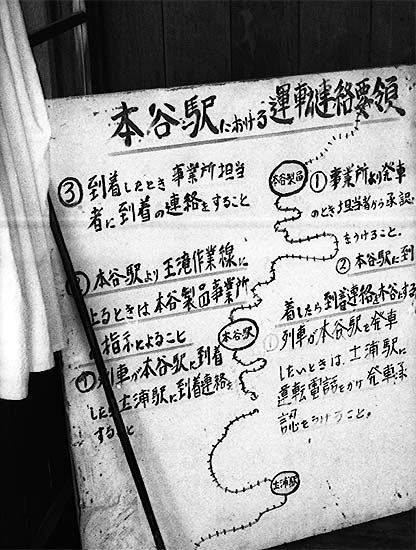 本谷駅における運転連絡要領
本谷製品
①事業所より発車
のとき担当者から承認
をうけること.
②本谷駅に到
着したら到着連絡を本谷する
③到着したとき事業所担当
者に到着の連絡をすること
本谷駅より王滝作業線に
よるときは本谷製品事業所
指示によること
本谷駅
①列車が本谷駅に到着
したら土浦駅に到着連絡を
すること
①列車が本谷駅を発車
したいときは、土浦駅に
運転電話をかけ発車承
認をうけること。
土浦駅